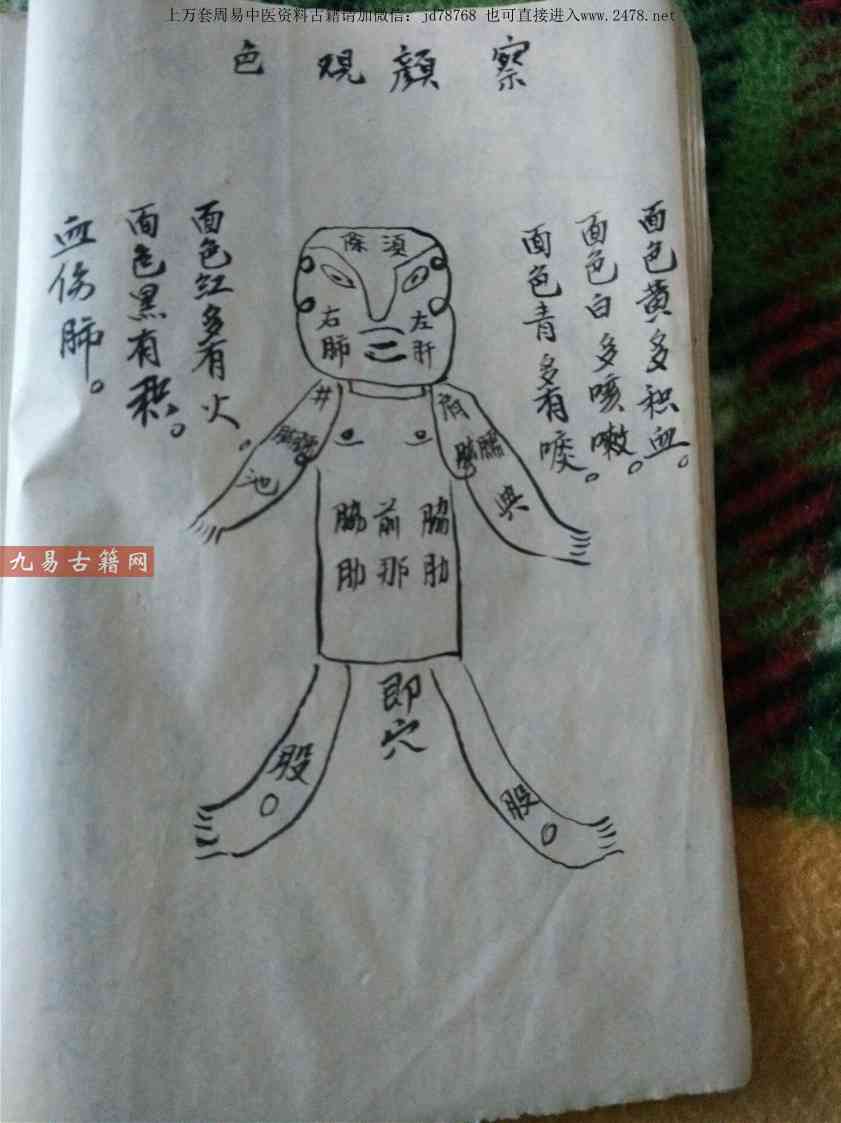 上万套周易中医资料古籍请加微信：jd78768 也可直接进入www.2478.net
察顔观色
面色黄多积血。
面色白多咳嗽。
面色青多有痰。
面色红多有火。
面色黑有积。
血伤肺。
須
左肝
右肺
井
池
典
脇肋
前那
脇肋
即穴
股
股
九易古籍网